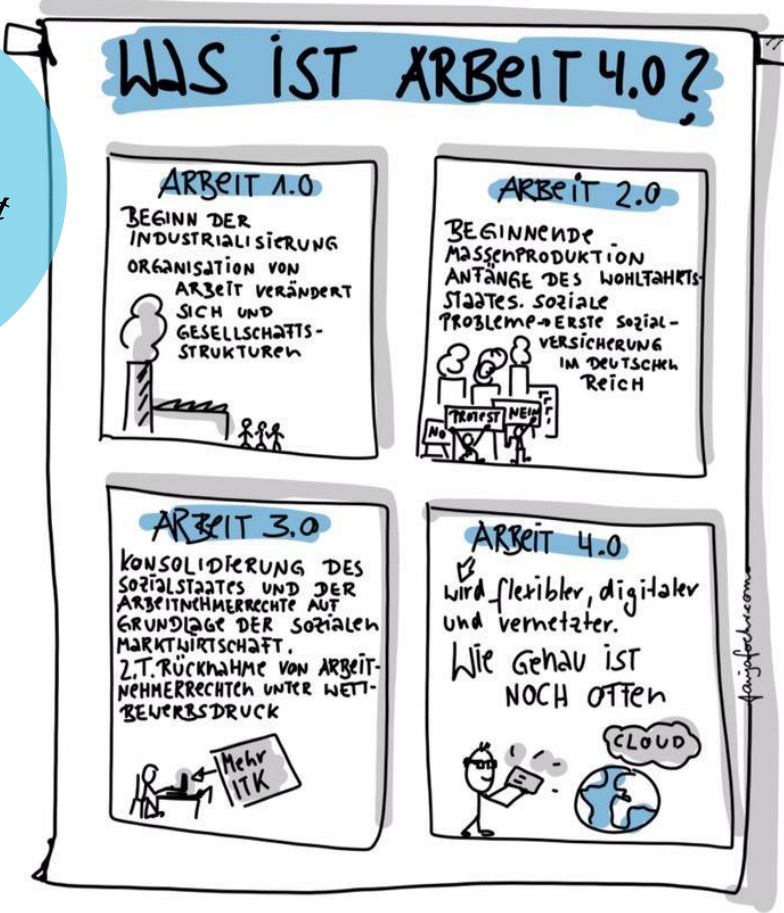 WAS IST ARBEIT 4.0?
ARBEIT 1.0
BEGINN DER
INDUSTRIALISIERUNG
ORGANISATION VON
ARBEIT VERÄNDERT
SICH UND
GESELLSCHAFTS-
STRUKTUREN
ARBEIT 2.0
BEGINNENDE
MASSENPRODUKTION
ANFÄNGE DES WOHLFAHRTS-
STAATES. SOZIALE
PROBLEME→ERSTE SOZIAL-
VERSICHERUNG
IM DEUTSCHEN
REICH
NO
PROTEST
NEIN
ARBEIT 3.0
KONSOLIDIERUNG DES
SOZIALSTAATES UND DER
ARBEITNEHMERRECHTE AUF
GRUNDLAGE DER SOZIALEN
MARKTWIRTSCHAFT.
Z.T. RÜCKNAHME VON ARBEIT-
NEHMERRECHTEN UNTER WETT-
BEWERBSDRUCK
Mehr
ITK
ARBEIT 4.0
wird flexibler, digitaler
und vernetzter.
Wie genau ist
NOCH OFFEN
CLOUD